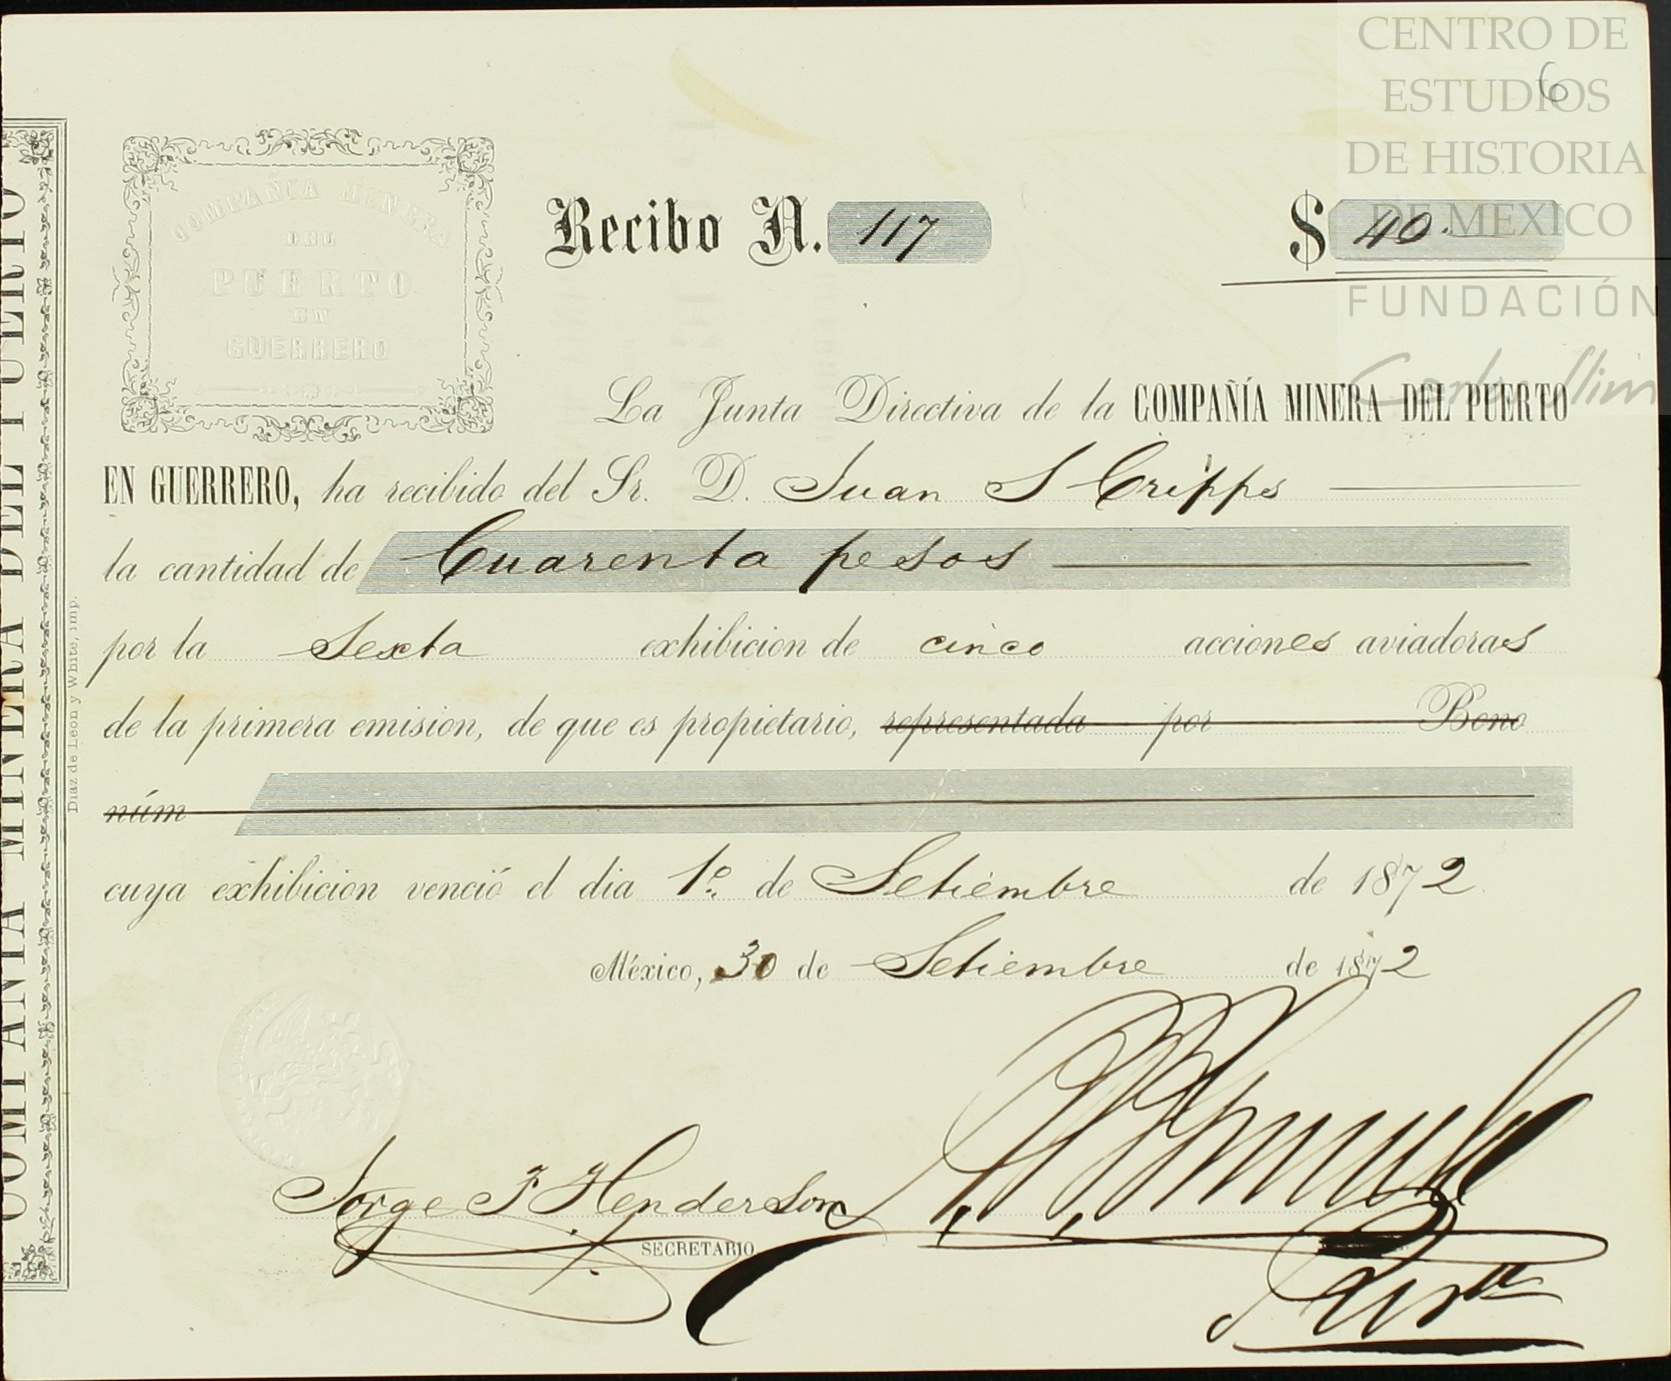 CENTRO DE
ESTUDIOS
DE HISTORIA
DE MEXICO
FUNDACIÓN
Carlos Slim
6
COMPAÑIA MINERA
DEL
PUERTO
EN
GUERRERO
Recibo N. 117 $ 40.
La Junta Directiva de la COMPAÑÍA MINERA DEL PUERTO
EN GUERRERO, ha recibido del Sr. D. Juan S Cripps
la cantidad de Cuarenta pesos
por la Sexta exhibicion de cinco acciones aviadoras
de la primera emision, de que es propietario, representada por Bono
núm
cuya exhibicion venció el dia 1º. de Setiembre de 1872
México, 30 de Setiembre de 1872
Jorge F Henderson
SECRETARIO
COMPAÑIA MINERA DEL PUERTO
Diaz de Leon y White, imp.